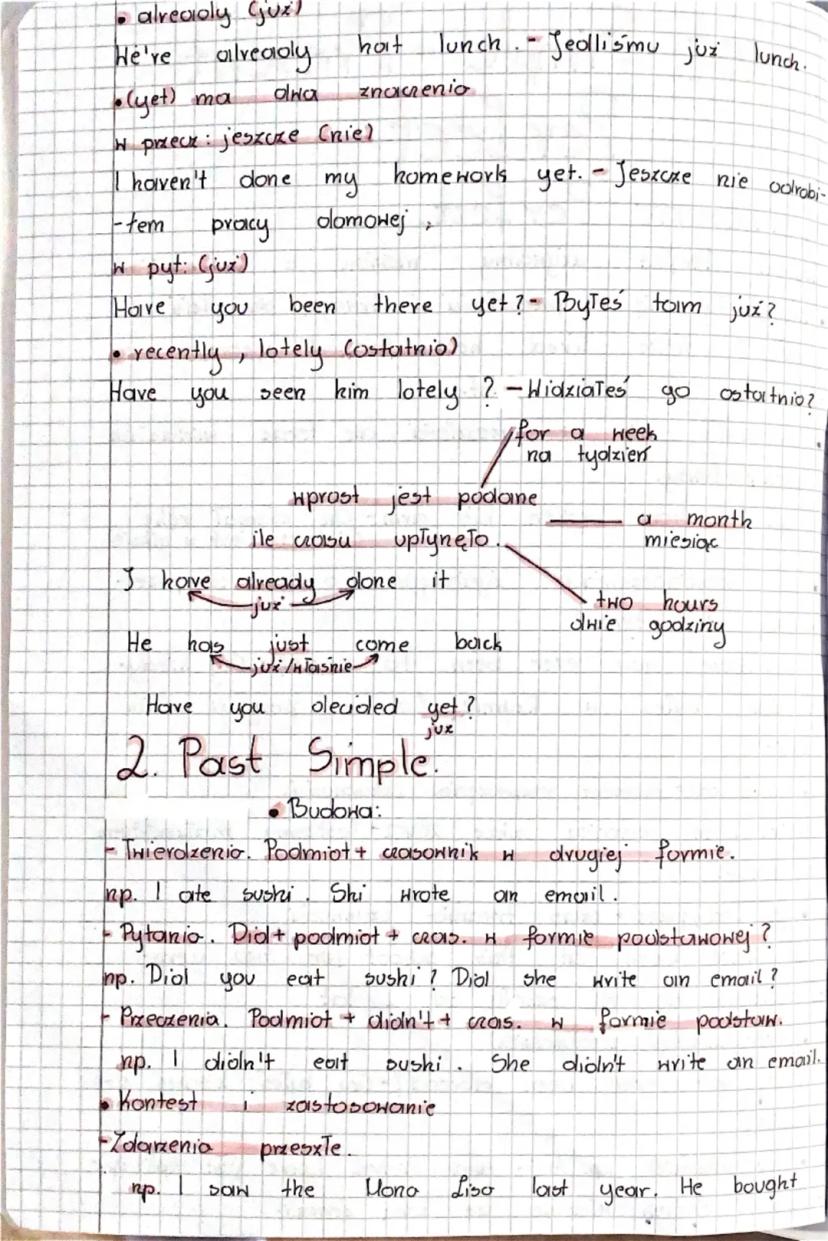 • already (już)
We're already hat lunch. - Jedliśmu już lunch.
•(yet) ma dwa znaczenia
w przecz: jeszcze (nie)
I haven't done my homework yet. - Jeszcze nie odrobi-
-łem pracy domowej,
w pyt: (już)
Have you been there yet? - Byłeś tam już?
• recently, lately (ostatnio)
Have you seen him lately? - Widziałeś go ostatnio?
for a week
na tydzień
wprost jest podane
a month
ile czasu upłynęło.
miesiąc
I have already done it
już
two hours
dwie godziny
He has just come back
już/właśnie
Have you decided yet?
już
2. Past Simple.
• Budowa:
- Twierdzenia. Podmiot + czasownik w drugiej formie.
np. I ate sushi. Shi wrote an email.
- Pytania. Did + podmiot + czas. w formie podstawowej?
np. Did you eat sushi? Did she write an email?
- Przeczenia. Podmiot + didn't + czas. w formie podstaw.
np. I didn't eat sushi. She didn't write an email.
• Kontest i zastosowanie
- Zdarzenia przeszłe.
np. I saw the Mona Lisa last year. He bought